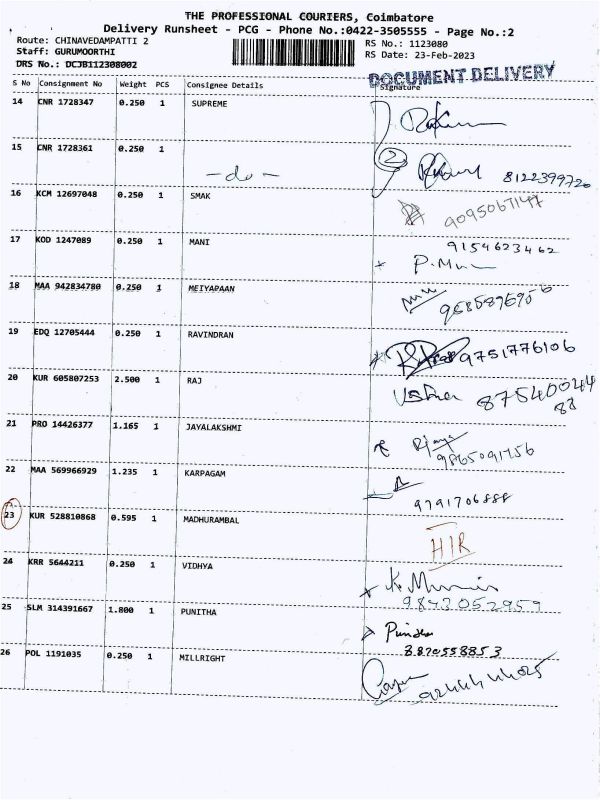 THE PROFESSIONAL COURIERS, Coimbatore
Delivery Runsheet - PCG - Phone No.:0422-3505555 - Page No.:2
Route: CHINAVEDAMPATTI 2
Staff: GURUMOORTHI
DRS No.: DCJB112308002
RS No.: 1123080
RS Date: 23-Feb-2023
DOCUMENT DELIVERY
S No Consignment No Weight PCS Consignee Details Signature
14 CNR 1728347 0.250 1 SUPREME
15 CNR 1728361 0.250 1 -do- 2 8122399720
16 KCM 12697048 0.250 1 SMAK 9095067147
17 KOD 1247089 0.250 1 MANI 9154623462
18 MAA 942834780 0.250 1 MEIYAPAAN
19 EDQ 12705444 0.250 1 RAVINDRAN 9751776106
20 KUR 605807253 2.500 1 RAJ Usha 87540044
88
21 PRO 14426377 1.165 1 JAYALAKSHMI 9865091756
22 MAA 569966929 1.235 1 KARPAGAM 9791706888
23 KUR 528810868 0.595 1 MADHURAMBAL HIR
24 KRR 5644211 0.250 1 VIDHYA
9843052959
25 SLM 314391667 1.800 1 PUNITHA Punitha
3870558853
26 POL 1191035 0.250 1 MILLRIGHT